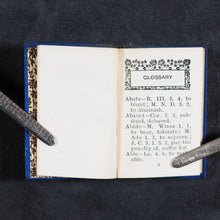 GLOSSARY
Abate—R. III. 5. 4, to
blunt; M. N. D. 3. 2,
to diminish.
Abated—Cor. 3. 3, sub-
dued, debased.
Abide—M. Wives 1. 1,
to bear, tolerate; M.
Ado 1. 1, to sojourn;
J. C. 3. 1; 3. 2, pay the
penalty of, suffer for.
to